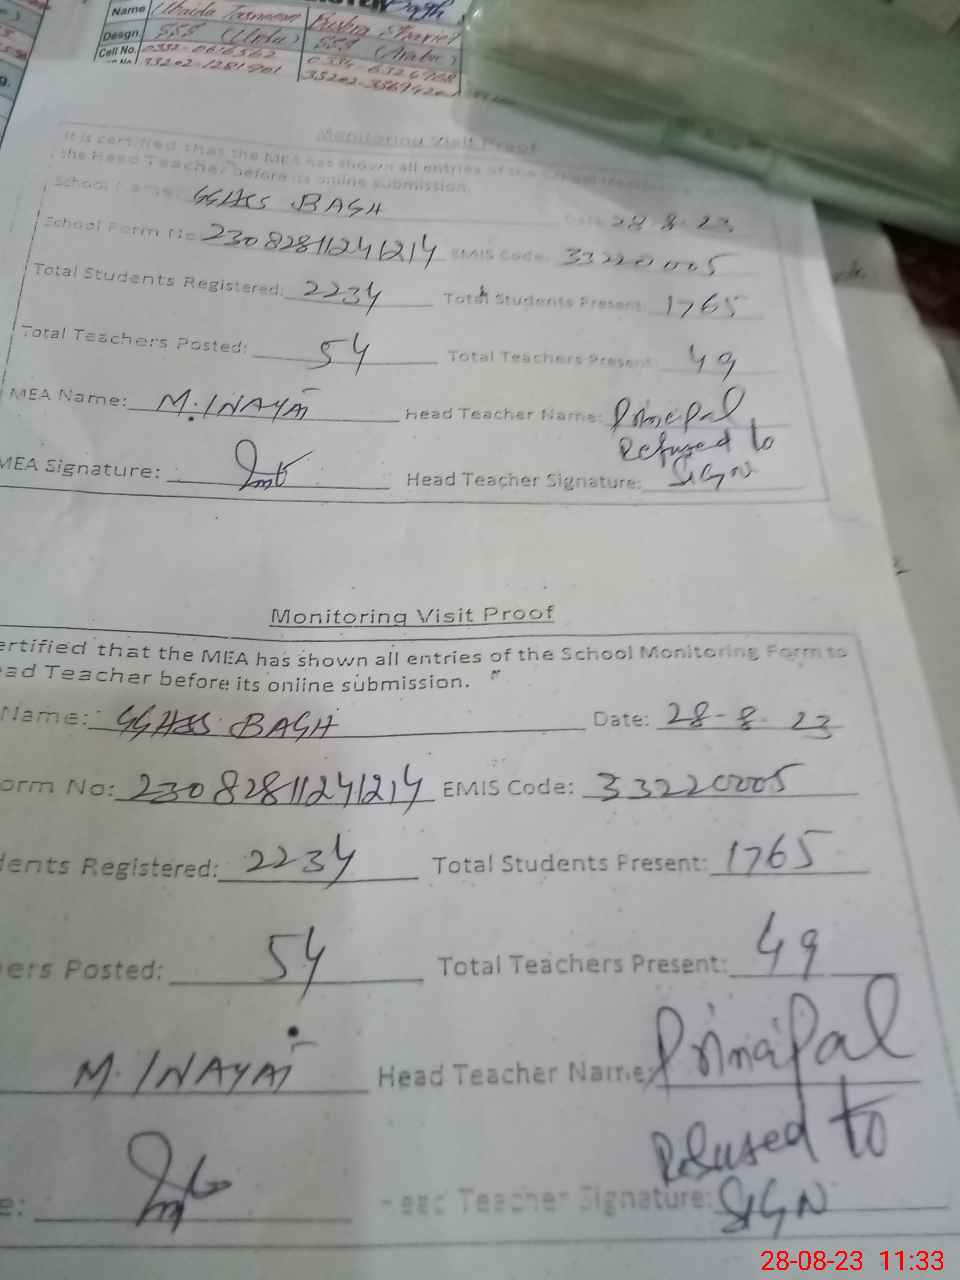 Name
Desgn. SSS (Urdu) SSS (Arabic)
Cell No. 0332-0616562
Monitoring Visit Proof
It is certified that the MEA has shown all entries of the
the Head Teacher before its online submission.
School Name: GGHSS BAGH Date: 28-8-23
School Form No: 23082811241214 EMIS Code: 33220005
Total Students Registered: 2234 Total Students Present: 1765
Total Teachers Posted: 54 Total Teachers Present: 49
MEA Name: M. INAYAT Head Teacher Name: Principal
Refused to
MEA Signature: Head Teacher Signature: SIGN
Monitoring Visit Proof
ertified that the MEA has shown all entries of the School Monitoring Form to
ead Teacher before its online submission.
Name: GGHSS BAGH Date: 28-8-23
orm No: 23082811241214 EMIS Code: 33220005
dents Registered: 2234 Total Students Present: 1765
ers Posted: 54 Total Teachers Present: 49
M. INAYAT Head Teacher Name: Principal
Refused to
e: Head Teacher Signature: SIGN
28-08-23 11:33